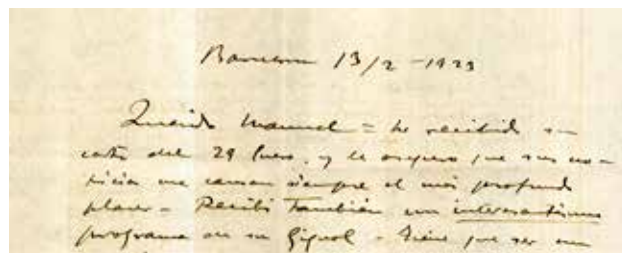 Barcelona 13/2-1923
Querido Manuel = he recibido su
carta del 29 Enero, y le aseguro que sus no-
ticias me causan siempre el más profundo
placer - Recibí también un interesantísimo
programa de su Giñol - Tiene que ser un